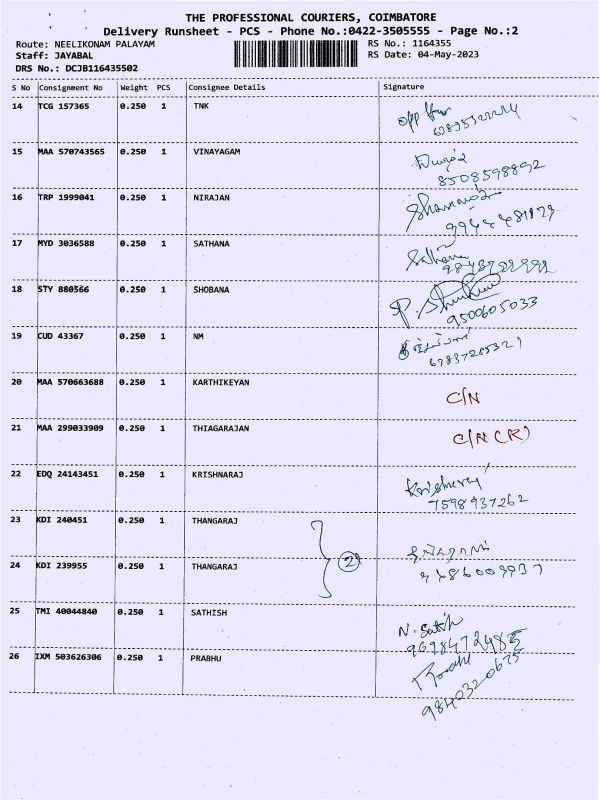 THE PROFESSIONAL COURIERS, COIMBATORE
Delivery Runsheet - PCS - Phone No.:0422-3505555 - Page No.:2
Route: NEELIKONAM PALAYAM
RS No.: 1164355
Staff: JAYABAL
RS Date: 04-May-2023
DRS No.: DCJB116435502
S No Consignment No Weight PCS Consignee Details Signature
14 TCG 157365 0.250 1 TNK
15 MAA 570743565 0.250 1 VINAYAGAM
8508598892
16 TRP 1999041 0.250 1 NIRAJAN
17 MYD 3036588 0.250 1 SATHANA
Sathana
18 STY 880366 0.250 1 SHOBANA
9500605033
19 CUD 43367 0.250 1 NM
20 MAA 570663688 0.250 1 KARTHIKEYAN
C/N
21 MAA 299033909 0.250 1 THIAGARAJAN
C/N (R)
22 EDQ 24143451 0.250 1 KRISHNARAJ
7598937262
23 KDI 240451 0.250 1 THANGARAJ
24 KDI 239955 0.250 1 THANGARAJ
25 TMI 40044840 0.250 1 SATHISH
N. Satish
26 IXM 503626306 0.250 1 PRABHU
9840320675